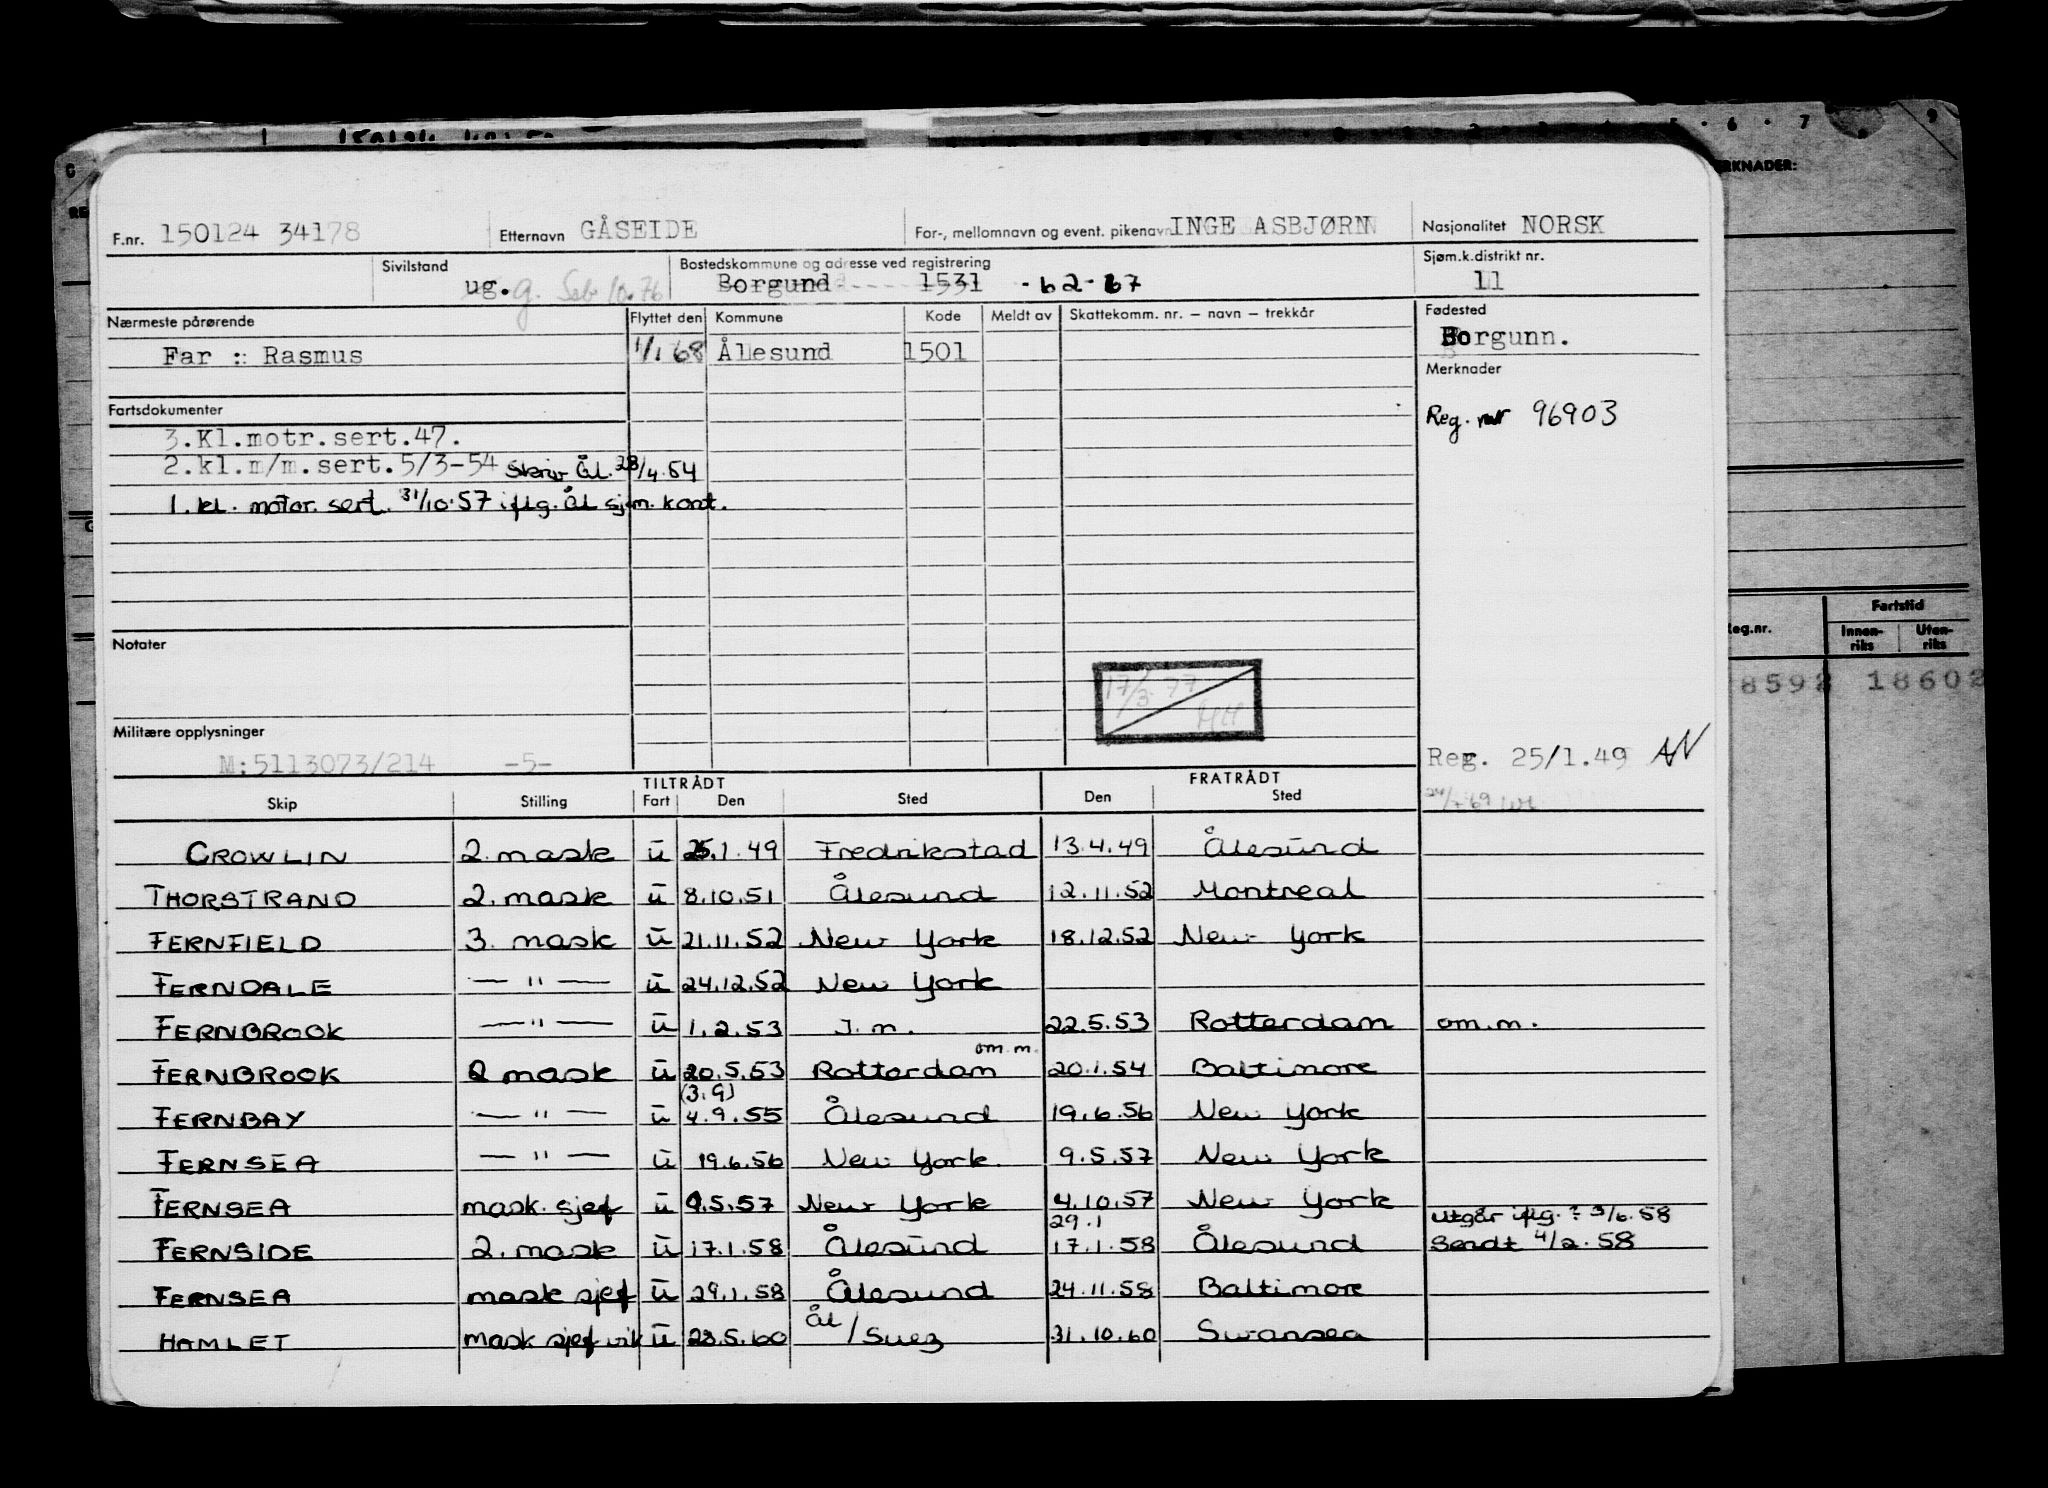 RKNADER:
F.nr. 150124 34178 Etternavn GÅSEIDE For-, mellomnavn og event. pikenavn INGE ASBJØRN Nasjonalitet NORSK
Sivilstand ug. g. Bostedskommune og adresse ved registrering Borgund 1531 - 62-67 Sjøm.k.distrikt nr. 11
Nærmeste pårørende Flyttet den Kommune Kode Meldt av Skattekomm. nr. – navn – trekkår Fødested
Borgunn.
Far : Rasmus 1/1 68 Ålesund 1501
Merknader
Fartsdokumenter
Reg. nr 96903
3.Kl.motr.sert.47.
2.kl.m/m.sert.5/3-54 Skriv Ål. 28/4.54
1. kl. motor. sert. 31/10.57 iflg. Ål sjøm. kont.
Fartstid
eg.nr. Innen-riks Uten-riks
Notater
8592 18602
17/3.77
HH
Militære opplysninger
M:5113073/214 -5-
Reg. 25/1.49 AN
TILTRÅDT FRATRÅDT
Skip Stilling Fart Den Sted Den Sted
CROWLIN 2. mask u 25.1.49 Fredrikstad 13.4.49 Ålesund
THORSTRAND 2. mask u 8.10.51 Ålesund 12.11.52 Montreal
FERNFIELD 3. mask u 21.11.52 New York 18.12.52 New York
FERNDALE — " — u 24.12.52 New York
FERNBROOK — " — u 1.2.53 J.m. 22.5.53 Rotterdam om.m.
om.m.
FERNBROOK 2 mask u 20.5.53 Rotterdam 20.1.54 Baltimore
(3.9)
FERNBAY — " — u 4.9.55 Ålesund 19.6.56 New York
FERNSEA — " — u 19.6.56 New York. 9.5.57 New York
FERNSEA mask. sjef u 9.5.57 New York 4.10.57 New York
29.1 Utgår iflg. ? 3/6.58
FERNSIDE 2. mask u 17.1.58 Ålesund 17.1.58 Ålesund Sendt 4/2.58
FERNSEA mask sjef u 29.1.58 Ålesund 24.11.58 Baltimore
HAMLET mask sjef vik u 28.5.60 Ål/Suez 31.10.60 Swansea